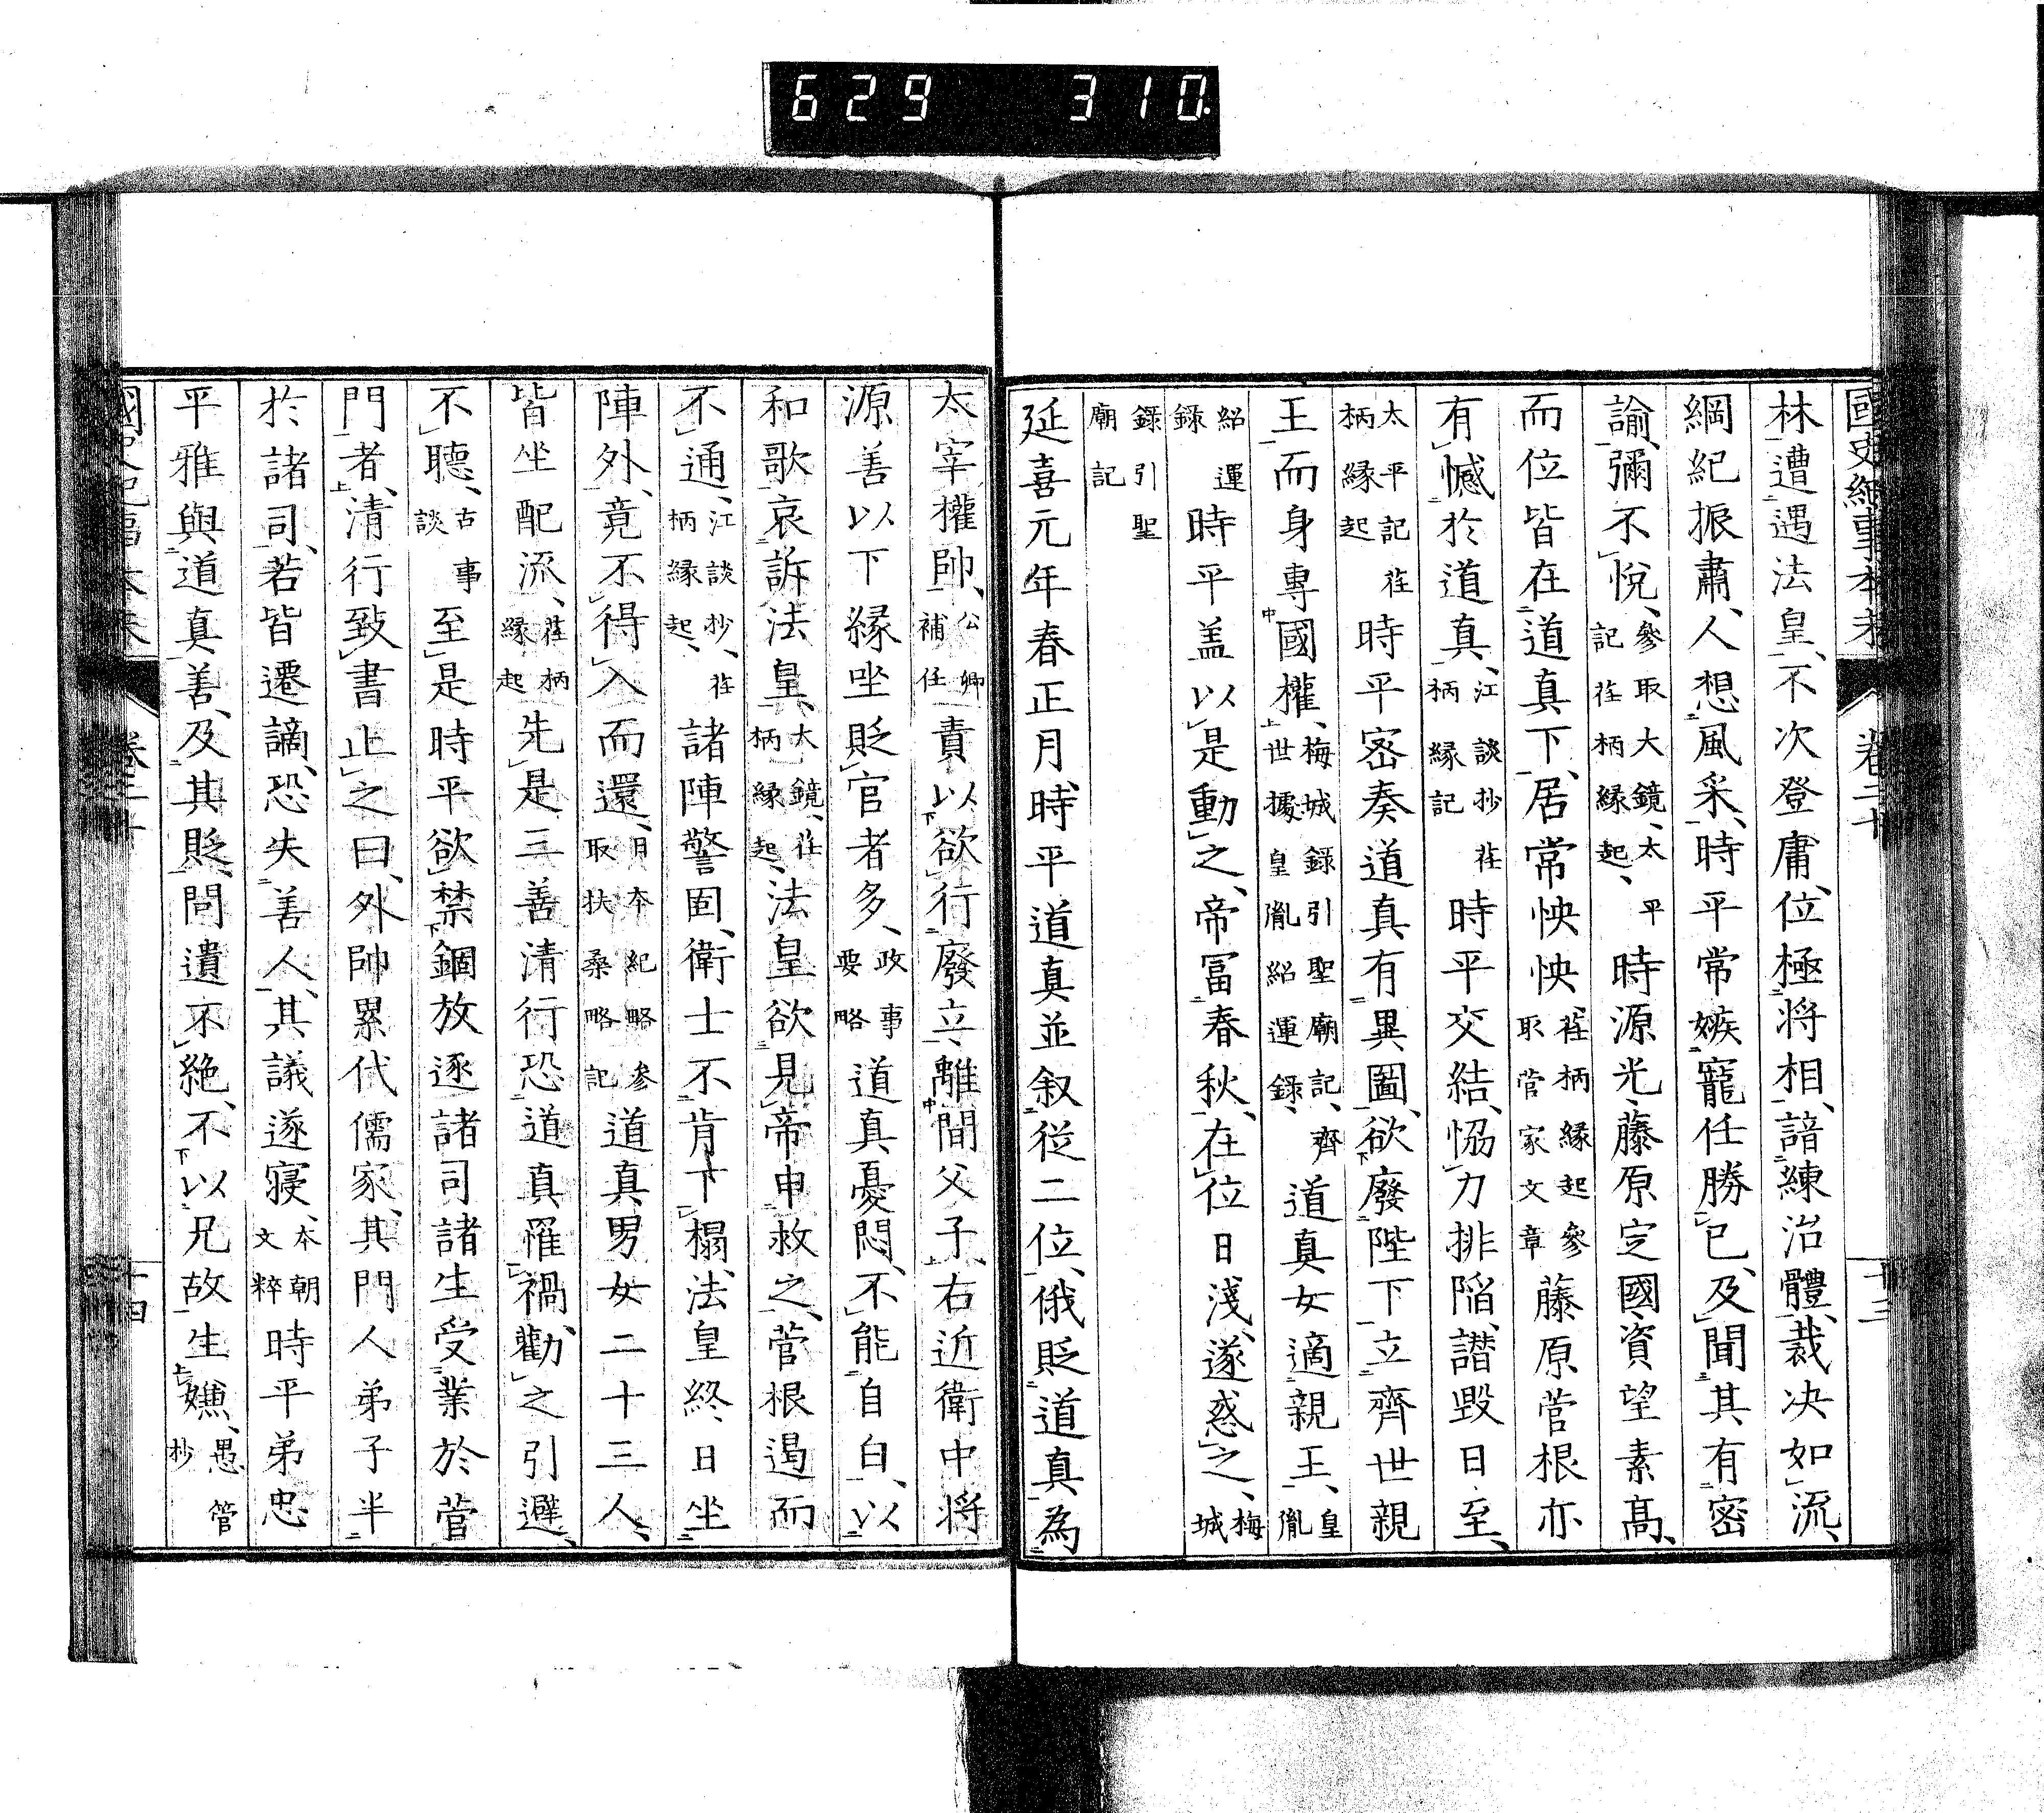 629 310.
國史紀事本末 卷二十 十三
林遭遇法皇、不次登庸、位極將相、諳練治體、裁决如流、
綱紀振肅、人想風采、時平常嫉寵任勝己、及聞其有密
諭、彌不悅、參取大鏡、太平記荏柄緣起、時源光、藤原定國、資望素高、
而位皆在道真下、居常怏怏、荏柄緣起參取菅家文章藤原菅根亦
有憾於道真、江談抄荏柄緣記時平交結、恊力排陷、譖毀日至、
太平記荏柄緣起時平密奏道真有異圖、欲廢陛下立齊世親
王而身專國權、梅城錄引聖廟記、齊世據皇胤紹運錄、道真女適親王、皇胤
紹運錄時平盖以是動之、帝冨春秋、在位日淺、遂惑之、梅城
錄引聖廟記
延喜元年春正月、時平道真並叙從二位、俄貶道真為
太宰權帥、公卿補任責以欲行廢立、離間父子、右近衛中將
源善以下緣坐貶官者多、政事要略道真憂悶、不能自白、以
和歌哀訴法皇、大鏡、荏柄緣起、法皇欲見帝申救之、菅根遏而
不通、江談抄、荏柄緣起、諸陣警固、衛士不肯下榻、法皇終日坐
陣外、竟不得入而還、日本紀略參取扶桑略記道真男女二十三人、
皆坐配流、荏柄緣起先是三善清行恐道真罹禍、勸之引避、
不聽、古事談至是時平欲禁錮放逐諸司諸生受業於菅
門者、清行致書止之曰、外帥累代儒家、其門人弟子半
於諸司、若皆遷謫、恐失善人、其議遂寢、本朝文粹時平弟忠
平雅與道真善、及其貶、問遺不絕、不以兄故生嫌、愚管抄
國史紀事本末 卷二十 十四